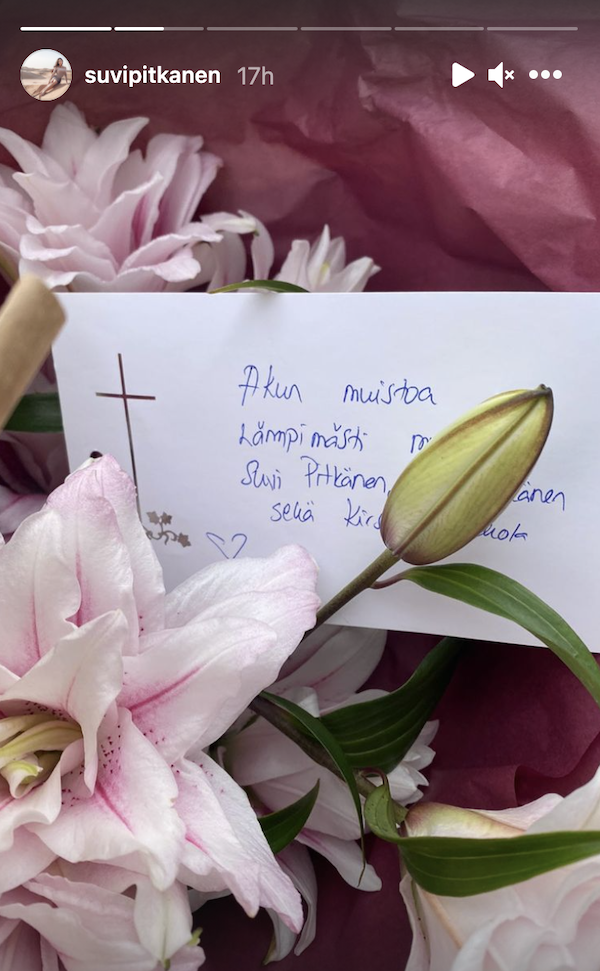 suvipitkanen 17h
Akun muistoa
Lämpimästi
Suvi Pitkänen,
sekä